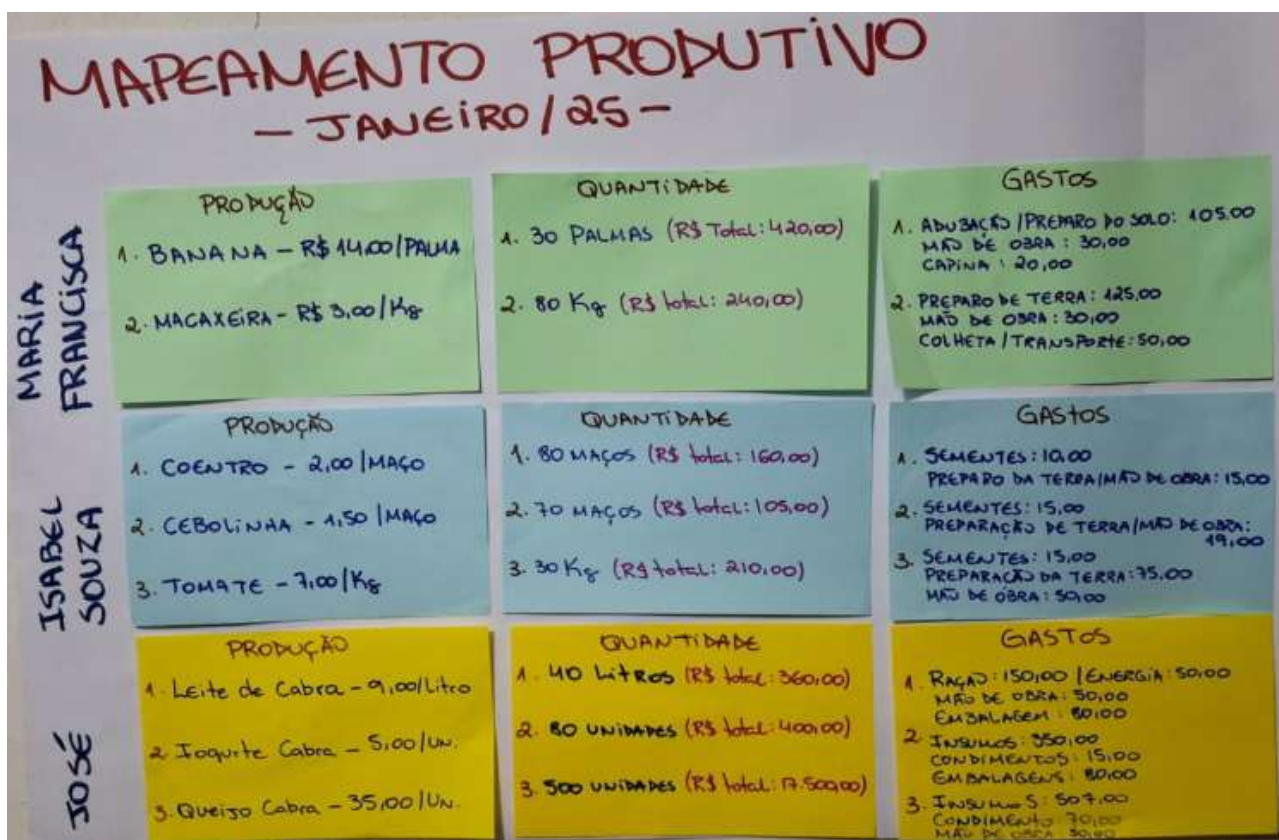 MAPEAMENTO PRODUTIVO
- JANEIRO/25 -
MARIA
FRANCISCA
PRODUÇÃO
1. BANANA - R$ 14,00/PALMA
2. MACAXEIRA - R$ 3,00/Kg
QUANTIDADE
1. 30 PALMAS (R$ Total: 420,00)
2. 80 Kg (R$ total: 240,00)
GASTOS
1. ADUBAÇÃO/PREPARO DO SOLO: 105.00
MÃO DE OBRA: 30,00
CAPINA: 20,00
2. PREPARO DE TERRA: 125,00
MÃO DE OBRA: 30,00
COLHETA/TRANSPORTE: 50,00
ISABEL
SOUZA
PRODUÇÃO
1. COENTRO - 2,00/MAÇO
2. CEBOLINHA - 1,50/MAÇO
3. TOMATE - 7,00/Kg
QUANTIDADE
1. 80 MAÇOS (R$ total: 160,00)
2. 70 MAÇOS (R$ total: 105,00)
3. 30 Kg (R$ total: 210,00)
GASTOS
1. SEMENTES: 10,00
PREPARO DA TERRA/MÃO DE OBRA: 15,00
2. SEMENTES: 15,00
PREPARAÇÃO DE TERRA/MÃO DE OBRA:
19,00
3. SEMENTES: 15,00
PREPARAÇÃO DA TERRA: 75,00
MÃO DE OBRA: 50,00
JOSÉ
PRODUÇÃO
1. Leite de Cabra - 9,00/Litro
2. Iogurte Cabra - 5,00/UN.
3. Queijo Cabra - 35,00/UN.
QUANTIDADE
1. 40 LITROS (R$ total: 360,00)
2. 80 UNIDADES (R$ total: 400,00)
3. 500 UNIDADES (R$ total: 17.500,00)
GASTOS
1. RAÇÃO: 150,00 / ENERGIA: 50,00
MÃO DE OBRA: 50,00
EMBALAGEM: 80,00
2. INSUMOS: 350,00
CONDIMENTOS: 15,00
EMBALAGENS: 80,00
3. INSUMOS: 507,00
CONDIMENTO: 70,00
MÃO DE OBRA